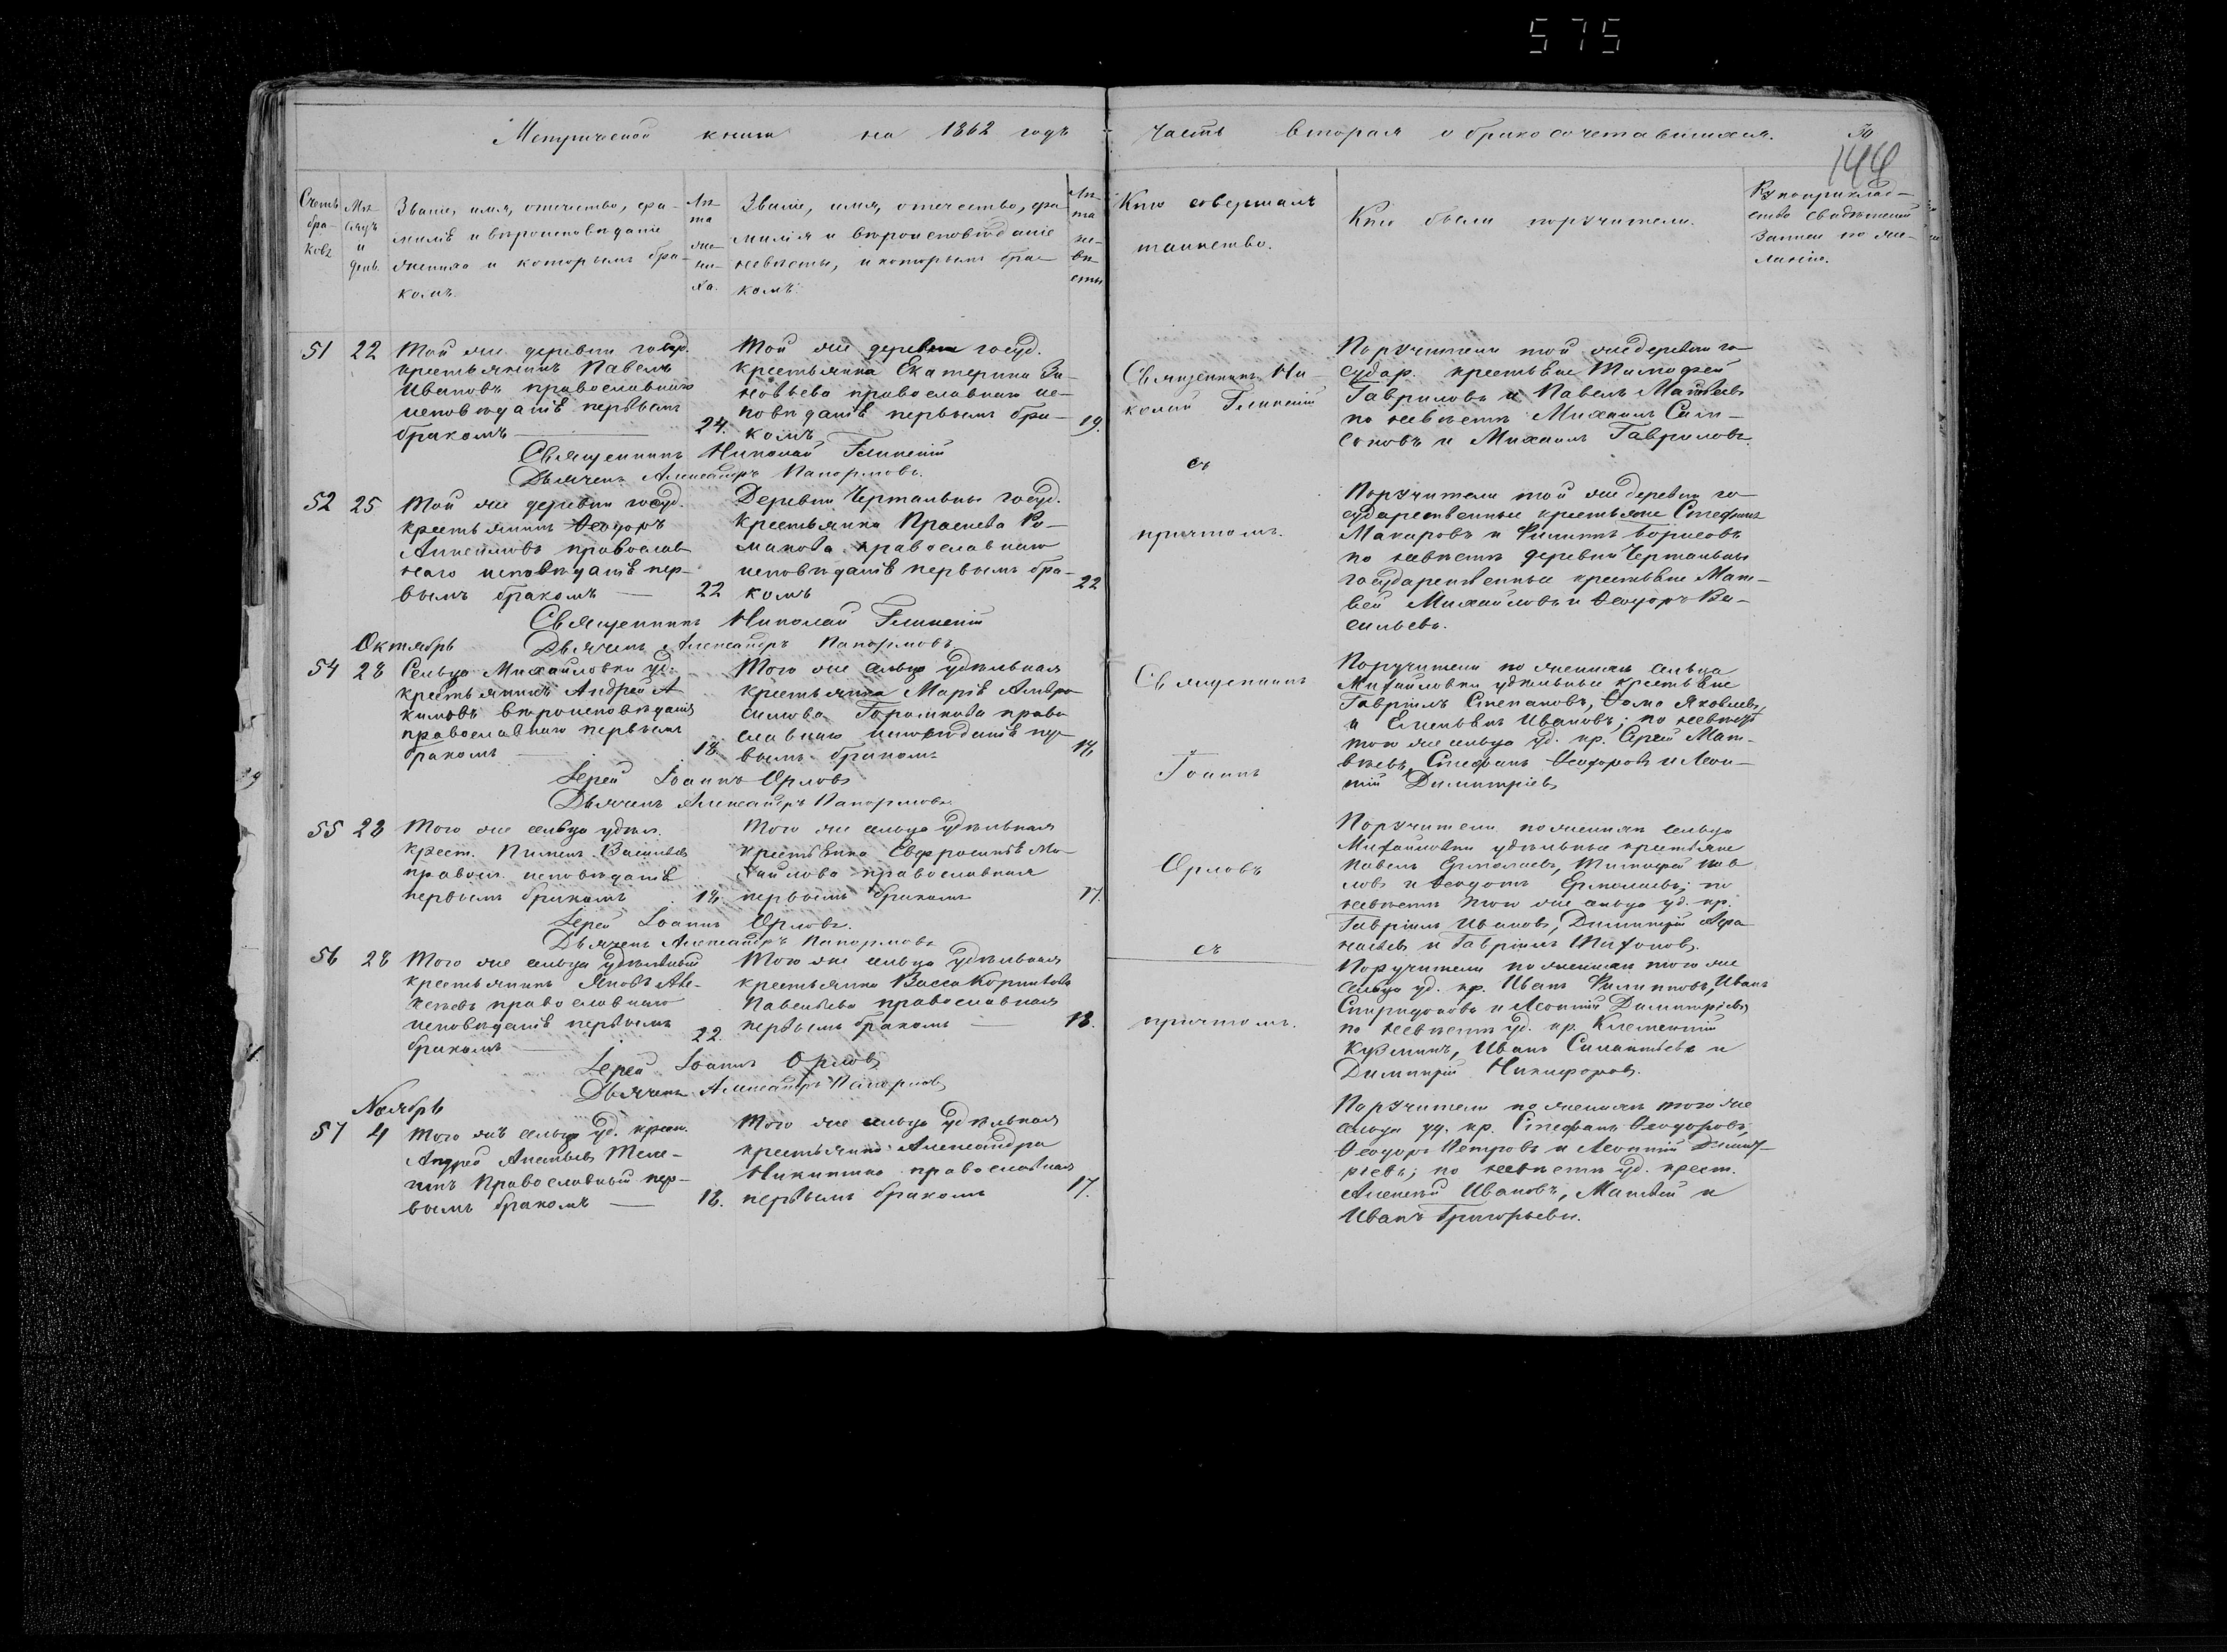 575
Метрической книги на 1862 годъ
часть вторая о бракосочетавшихся.
50
144
Счетъ бра- ковъ
Мѣ- сяцъ и день.
Званіе, имя, отчество, фа-
милія и вѣроисповѣданіе
жениха и которымъ бра-
комъ.
Лѣ- та же- ни- ха.
Званіе, имя, отчество, фа-
милія и вѣроисповѣданіе
невѣсты, и которымъ бра-
комъ.
Лѣ- та не- вѣ- сты
Кто совершалъ
таинство.
Кто были поручители.
Рукоприклад-
ство свидѣтелей
записи по же-
ланію.
51 22 Той же деревни госуд.
крестьянинъ Павелъ
Ивановъ православнаго
исповѣданія первымъ
бракомъ — 24.
Той же деревни госуд.
крестьянка Екатерина Зи-
новьева православнаго ис-
повѣданія первымъ бра-
комъ 19.
Священникъ Ни-
колай Глинскій
съ
причтомъ.
Поручители той же деревни го-
судар. крестьяне Тимофей
Гавриловъ и Павелъ Матвѣевъ
по невѣстѣ Михаилъ Сим-
оновъ и Михаилъ Гавриловъ.
Священникъ Николай Глинскій
Дьячекъ Александръ Папормовъ.
52 25 Той же деревни госуд.
крестьянинъ Ѳеодоръ
Анисимовъ православ-
наго исповѣданія пер-
вымъ бракомъ — 22
Деревни Чертальны госуд.
крестьянка Прасковья Ро-
манова православнаго
исповѣданія первымъ бра-
комъ 22
Поручители той же деревни го-
сударственные крестьяне Стефанъ
Макаровъ и Филиппъ Борисовъ
по невѣстѣ деревни Чертальны
государственные крестьяне Мат-
вей Михайловъ и Ѳеодоръ Ва-
сильевъ.
Священникъ Николай Глинскій
Дьячекъ Александръ Папормовъ
Октябрь
54 28 Сельца Михайловки уд.
крестьянинъ Андрей А-
кимовъ вѣроисповѣданія
православнаго первымъ
бракомъ — 18.
Того же сельца удѣльная
крестьянка Марія Амвро-
симова Горошкова право-
славнаго исповѣданія пер-
вымъ бракомъ 18.
Священникъ
Іоаннъ
Орловъ
съ
причтомъ.
Поручители по женихѣ сельца
Михайловки удѣльные крестьяне
Гавріилъ Степановъ, Ѳома Яковлевъ,
и Емельянъ Ивановъ; по невѣстѣ
того же сельца уд. кр. Сергѣй Мат-
вѣевъ, Стефанъ Ѳеодоровъ и Леон-
тій Димитріевъ
Іерей Іоаннъ Орловъ
Дьячекъ Александръ Папормовъ.
55 28 Того же сельца удѣл.
крест. Пименъ Васильевъ
правосл. исповѣданія
первымъ бракомъ 18.
Того же сельца удѣльная
крестьянка Евфросинія Ми-
хайлова православная
первымъ бракомъ 17.
Поручители по женихѣ сельца
Михайловки удѣльные крестьяне
Павелъ Ермолаевъ, Тимофей Пав-
ловъ и Ѳеодотъ Ермолаевъ; по
невѣстѣ того же сельца уд. кр.
Гавріилъ Ивановъ, Димитрій Афа-
насьевъ и Гавріилъ Тихоновъ.
Іерей Іоаннъ Орловъ.
Дьячекъ Александръ Папормовъ
56 28 Того же сельца удѣльный
крестьянинъ Яковъ Але-
ксѣевъ православнаго
исповѣданія первымъ
бракомъ — 22.
Того же сельца удѣльная
крестьянка Васса Корнильева
Павельева православная
первымъ бракомъ — 18.
Поручители по женихѣ того же
сельца уд. кр. Иванъ Филипповъ, Иванъ
Спиридоновъ и Леонтій Димитріевъ
по невѣстѣ уд. кр. Клементій
Кузминъ, Иванъ Силантьевъ и
Димитрій Никифоровъ.
Іерей Іоаннъ Орловъ
Дьячекъ Александръ Папормовъ
Ноябрь
57 4 Того жъ сельца уд. крест.
Андрей Анатьевъ Теле-
гинъ Православный пер-
вымъ бракомъ — 18.
Того же сельца удѣльная
крестьянка Александра
Никитина православная
первымъ бракомъ 17.
Поручители по женихѣ того же
сельца уд. кр. Стефанъ Ѳеодоровъ,
Ѳеодоръ Петровъ и Леонтій Димит-
ріевъ; по невѣстѣ уд. крест.
Алексѣй Ивановъ, Матвѣй и
Иванъ Григорьевы.